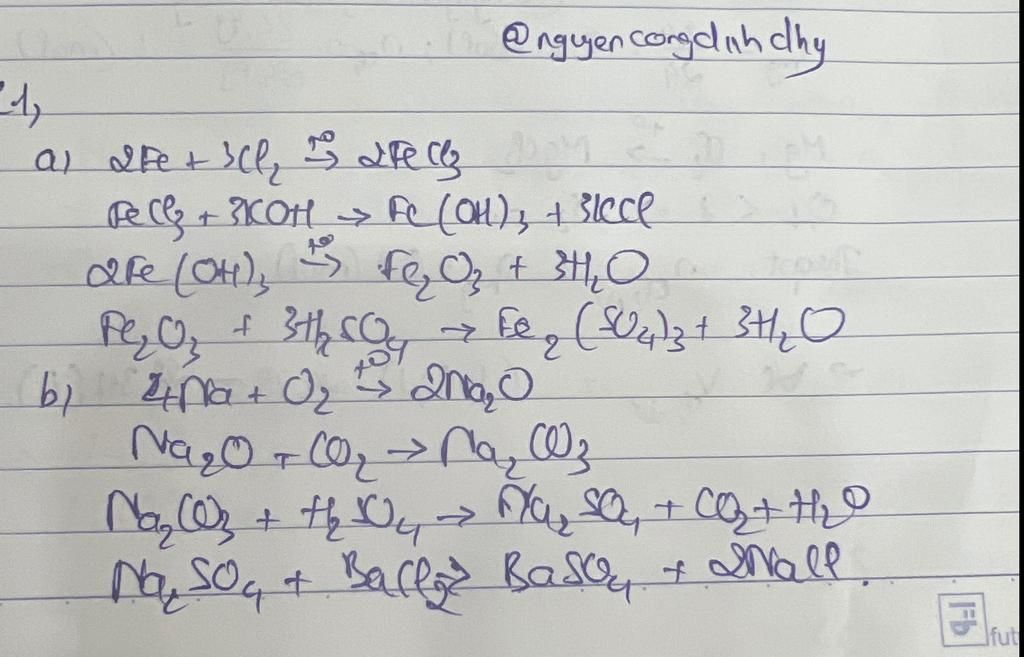 @nguyencongdnhdhy
1,
a) 2Fe + 3Cl₂ t°→ 2FeCl₃
FeCl₃ + 3KOH → Fe(OH)₃ + 3KCl
2Fe(OH)₃ t°→ Fe₂O₃ + 3H₂O
Fe₂O₃ + 3H₂SO₄ → Fe₂(SO₄)₃ + 3H₂O
b) 4Na + O₂ t°→ 2Na₂O
Na₂O + CO₂ → Na₂CO₃
Na₂CO₃ + H₂SO₄ → Na₂SO₄ + CO₂ + H₂O
Na₂SO₄ + BaCl₂ → BaSO₄ + 2NaCl.
fut